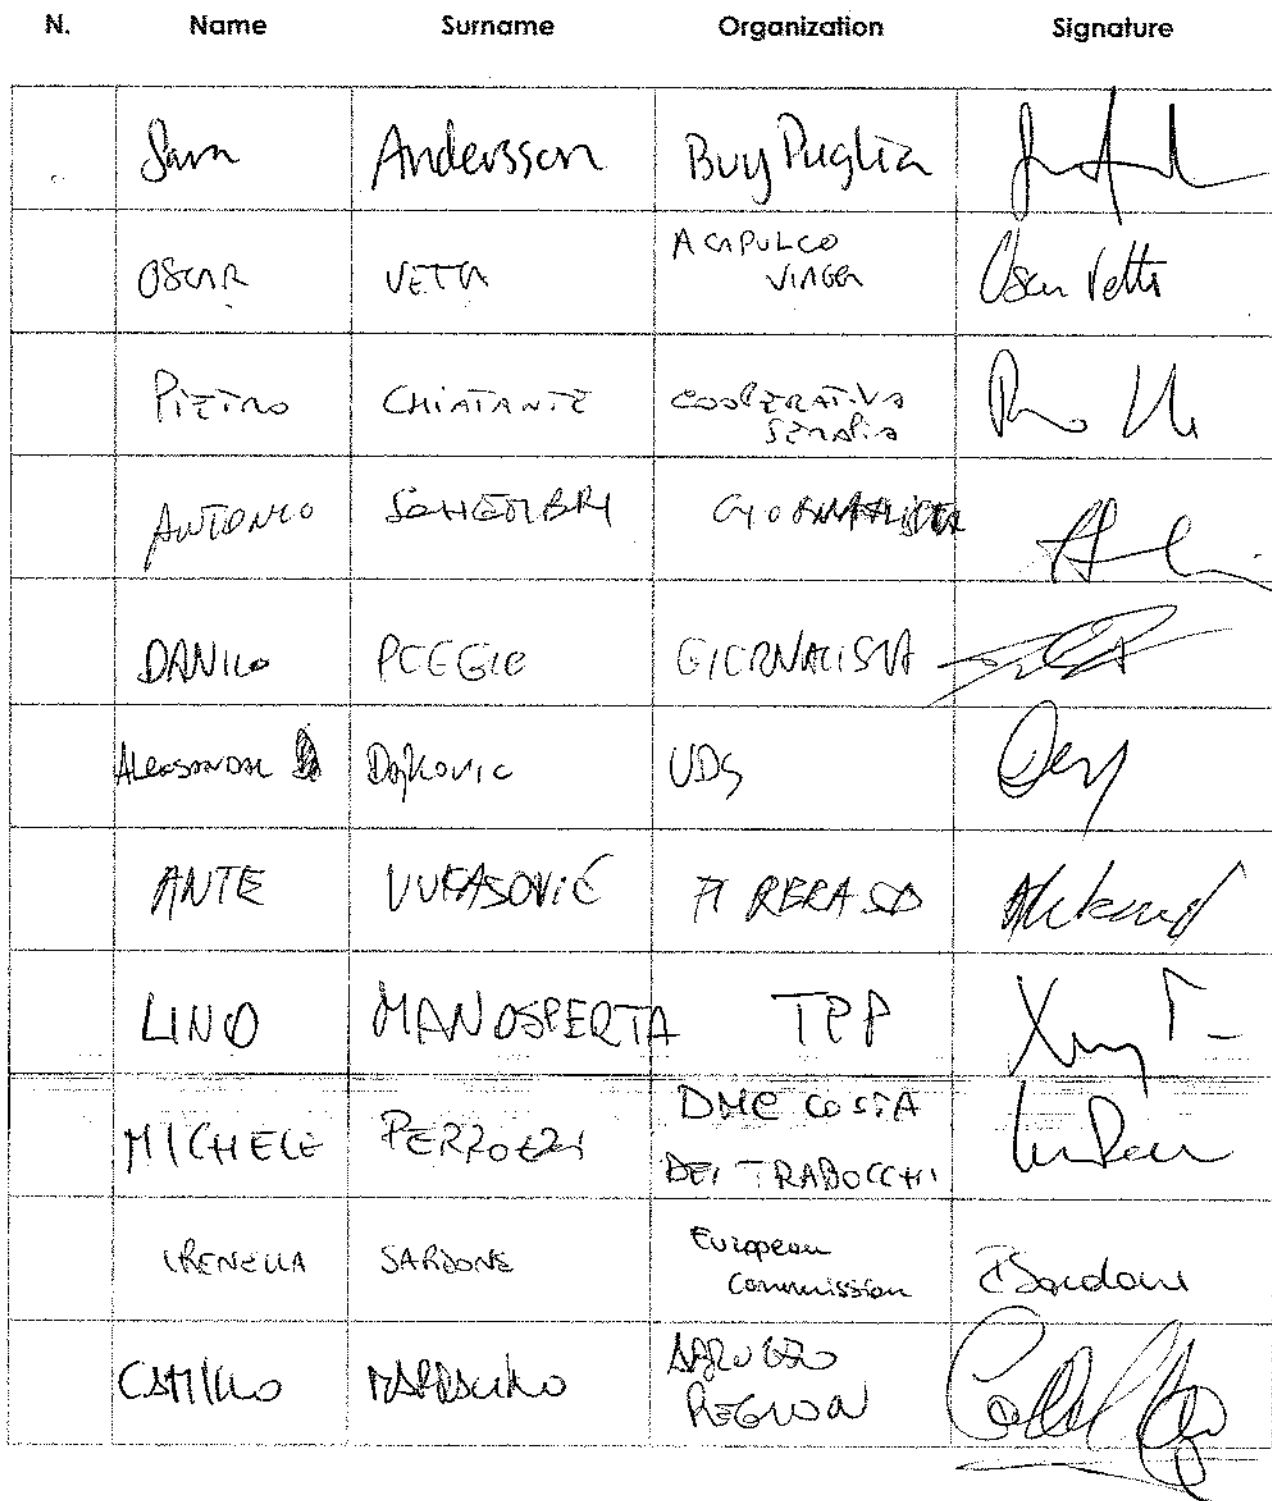 N. Name Surname Organization Signature
Sara Andersson Buy Puglia
OSCAR VETTA ACAPULCO
VIAGGI Oscar Vetta
PIETRO CHIATANTE COOPERATIVA
SERAPIA
ANTONIO SCHEMBRI GIORNALISTA
DANILO POGGIO GIORNALISTA
ALEKSANDAR Dajkovic UDG
ANTE VUKASOVIĆ
LINO MANOSPERTA TPP
MICHELE PEROZZI DMC COSTA
DEI TRABOCCHI
IRENELLA SARDONE European
Commission ISardone
CAMILLO ABRUZZO
REGION